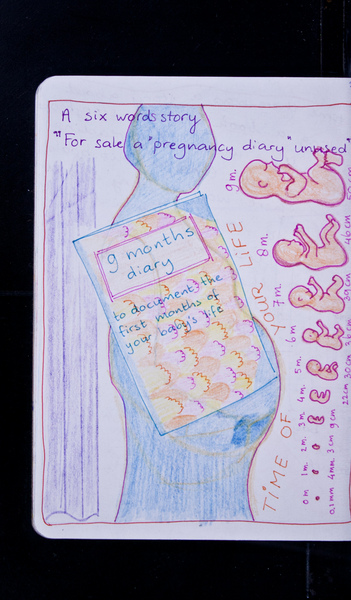 A six words story
"For sale a "pregnancy diary" unused"
9 months
diary
to documents the
first months of
your baby's life
TIME OF YOUR LIFE
0 m. 1 m. 2 m. 3 m. 4 m. 5 m. 6 m. 7 m. 8 m. 9 m.
0,1mm 4mm 3 cm 9 cm 22cm 30cm 46 cm